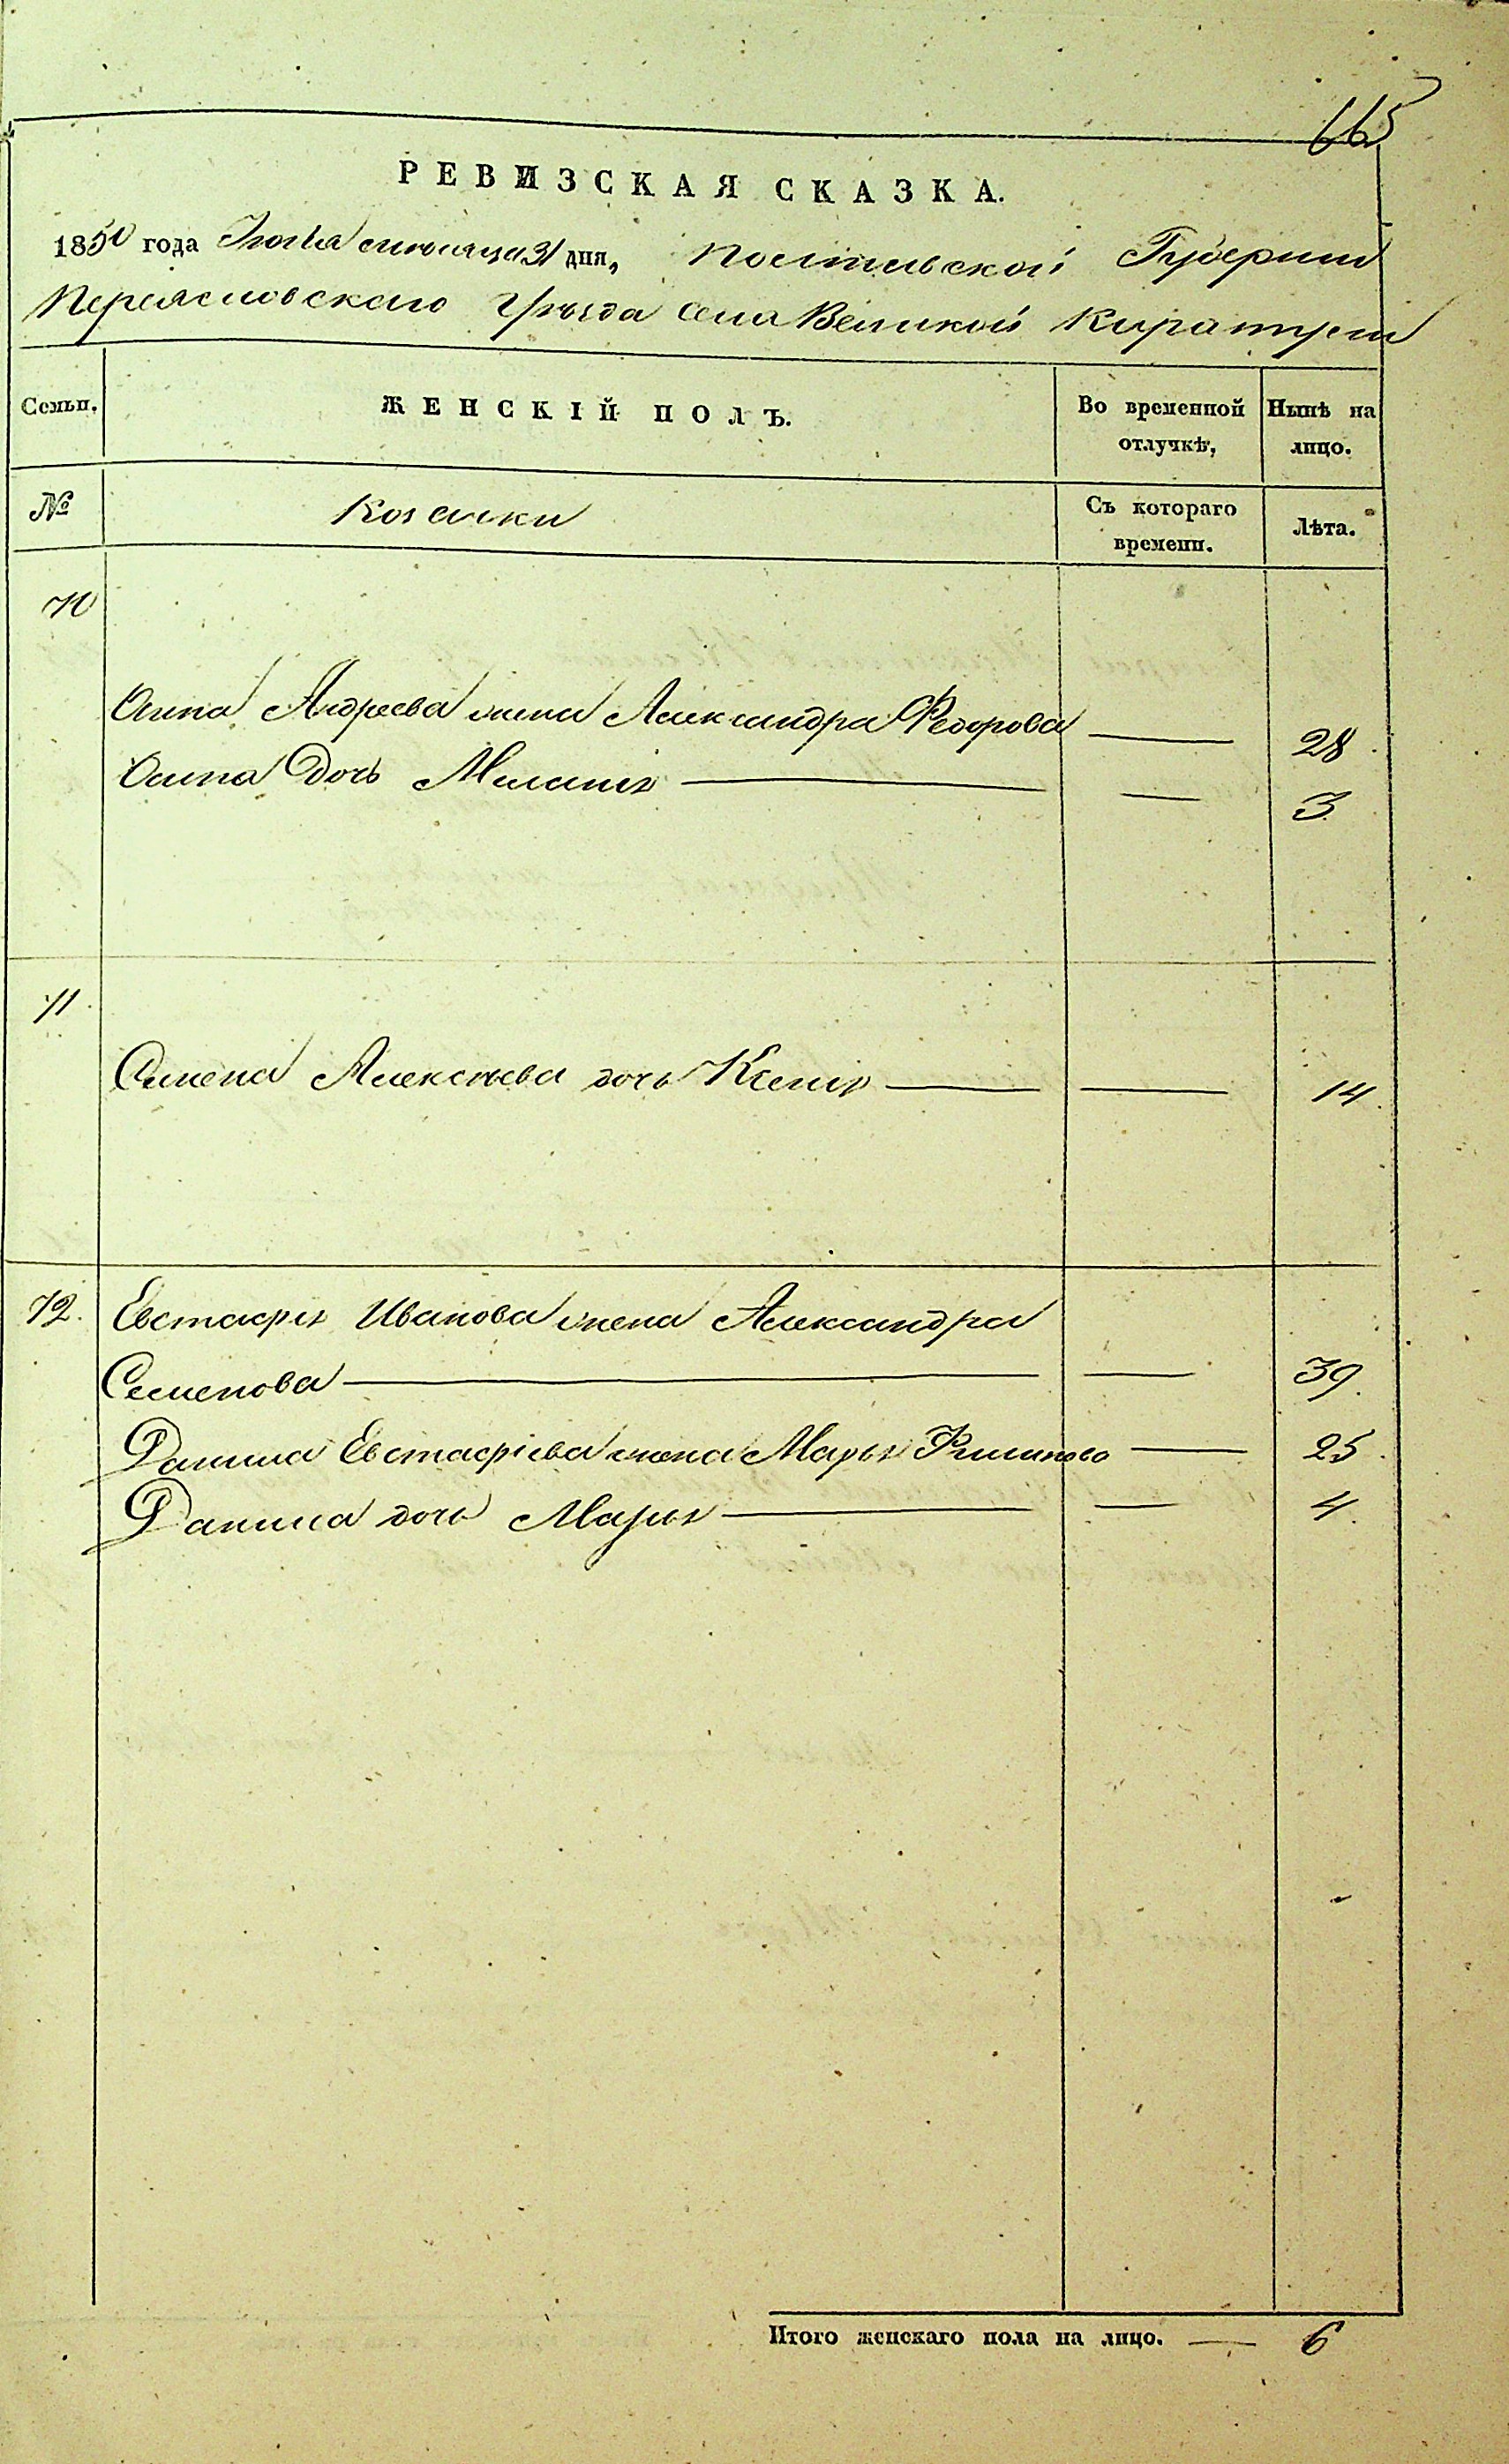 665
РЕВИЗСКАЯ СКАЗКА.
1850 года Іюля мѣсяца 31 дня, Полтавской Губерніи
Переяславскаго Уѣзда села Великой Каратули
Семьи. ЖЕНСКІЙ ПОЛЪ. Во временной отлучкѣ, Нынѣ на лицо.
№ Козачки Съ котораго времени. Лѣта.
70
Анна Андреева жена Александра Федорова — 28
дочь Меланія — — 3
71.
Семена Алексѣева дочь Ксенія — — 14.
72. Евстафія Иванова жена Александра
Семенова — — 39.
Данила Евстафіева жена Марья Филипова — 25.
Данила дочь Марья — — 4.
Итого женскаго пола на лицо. — 6